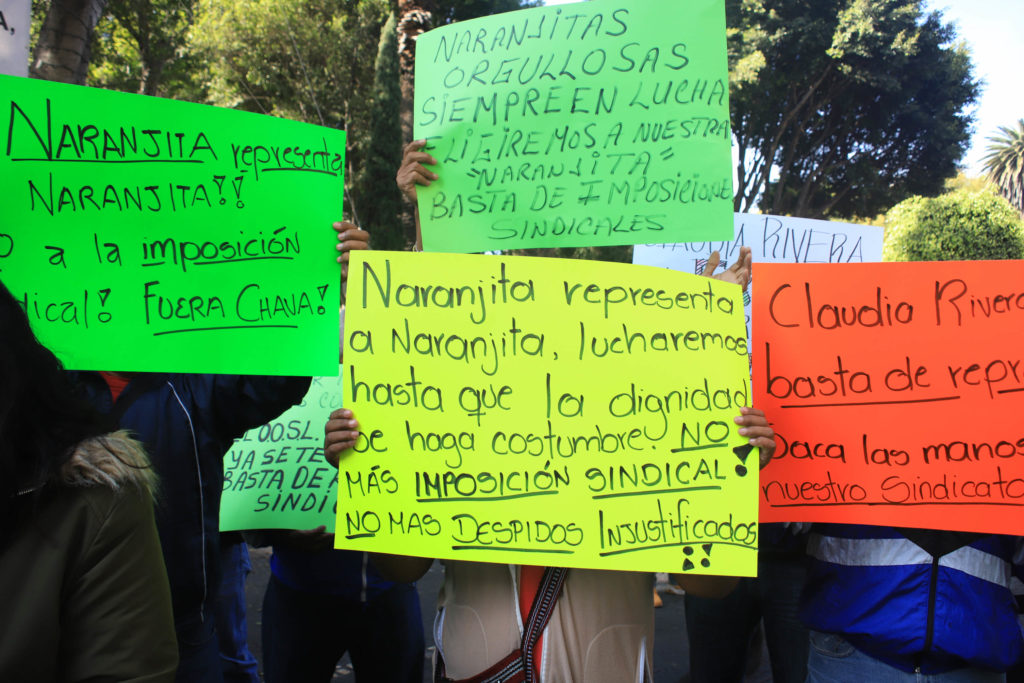 NARANJITAS
ORGULLOSAS
SIEMPRE EN LUCHA
ELIGIREMOS A NUESTRA
"NARANJITA"
BASTA DE IMPOSICIONE
SINDICALES
NARANJITA representa
NARANJITA!!
a la imposición
dical! FUERA CHAVA!
Naranjita representa
a Naranjita, lucharemos
hasta que la dignidad
se haga costumbre. NO
MÁS IMPOSICIÓN SINDICAL!
NO MAS DESPIDOS INJUSTIFICADOS!!
CLAUDIA RIVERA
Claudia Rivera
basta de repr
saca las manos
nuestro Sindicato
O.O.S.L.
YA SE TE
BASTA DE
SINDI